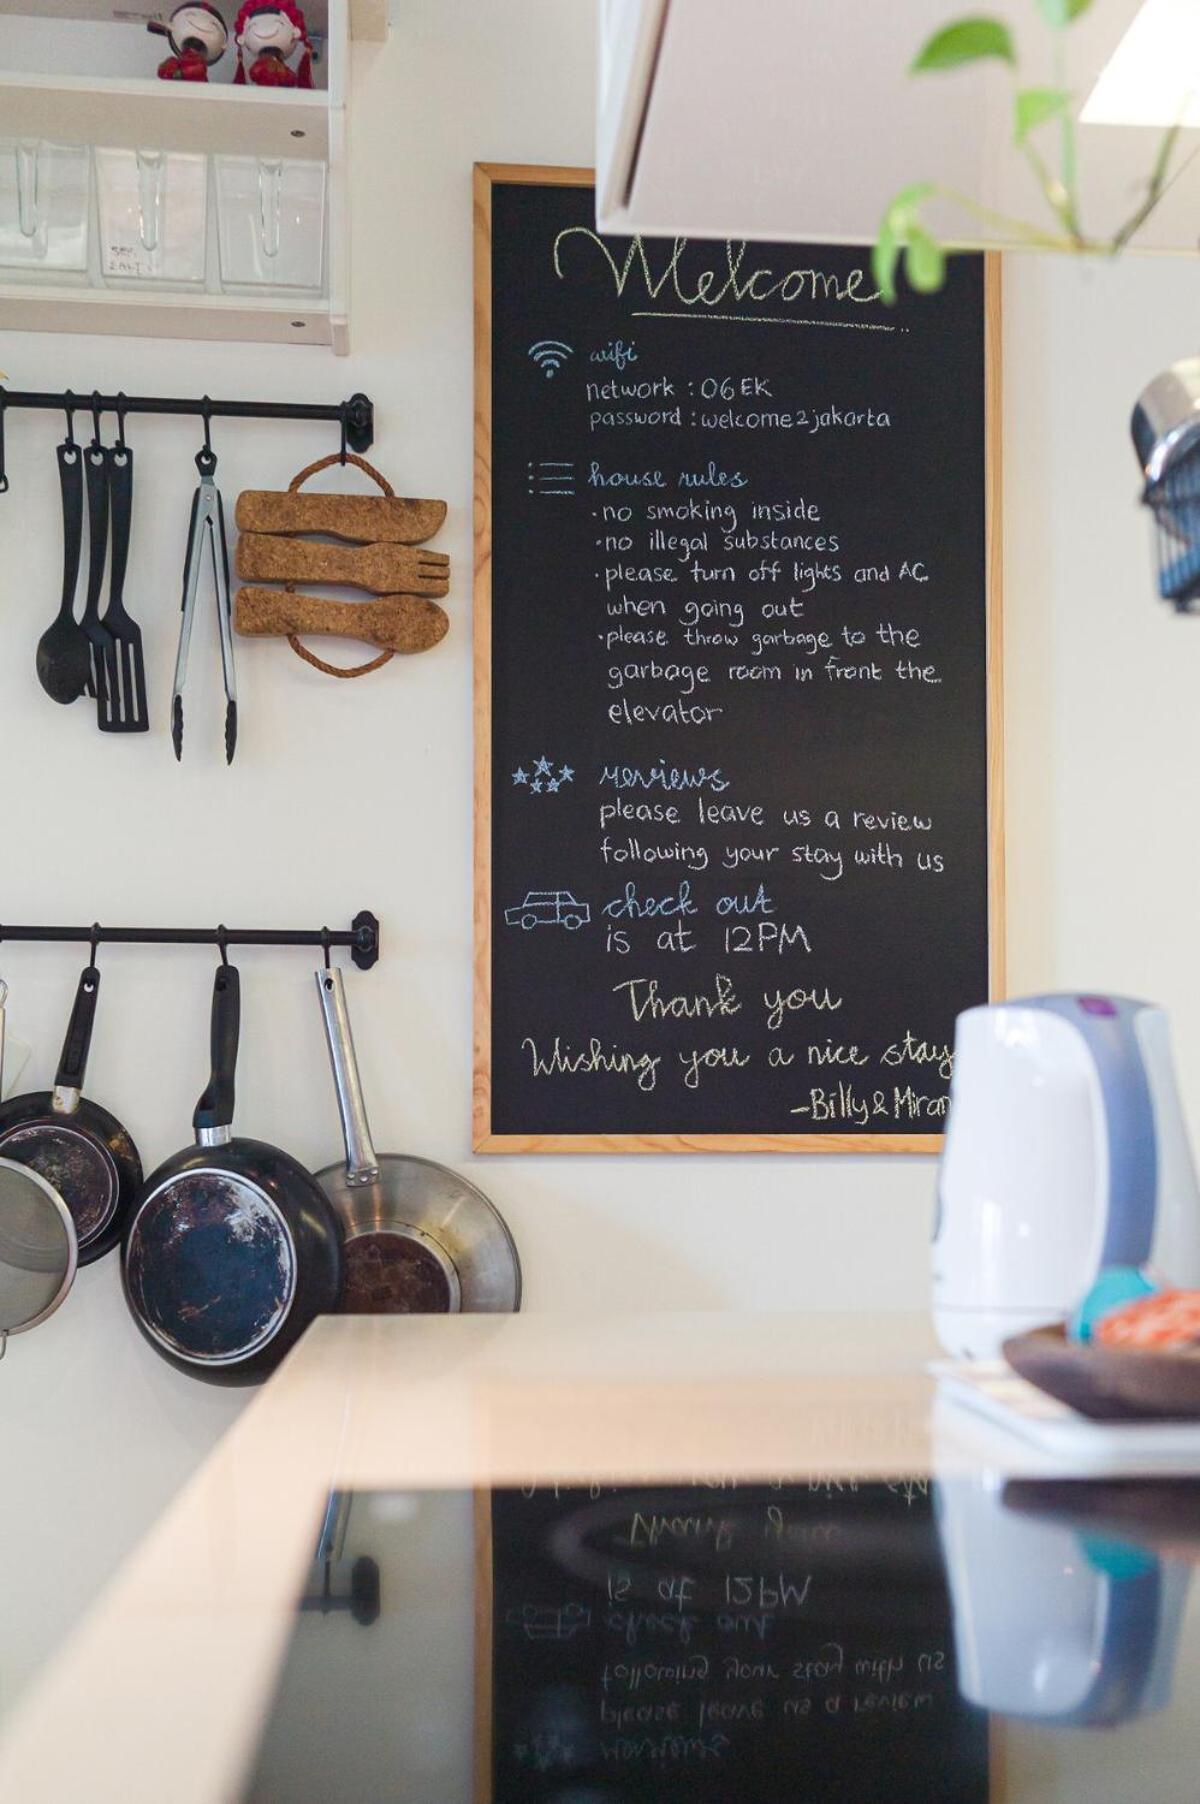 SEA
SALT
Welcome
wifi
network : 06EK
password : welcome2jakarta
house rules
· no smoking inside
· no illegal substances
· please turn off lights and AC
when going out
· please throw garbage to the
garbage room in front the
elevator
reviews
please leave us a review
following your stay with us
check out
is at 12PM
Thank you
Wishing you a nice stay
- Billy &